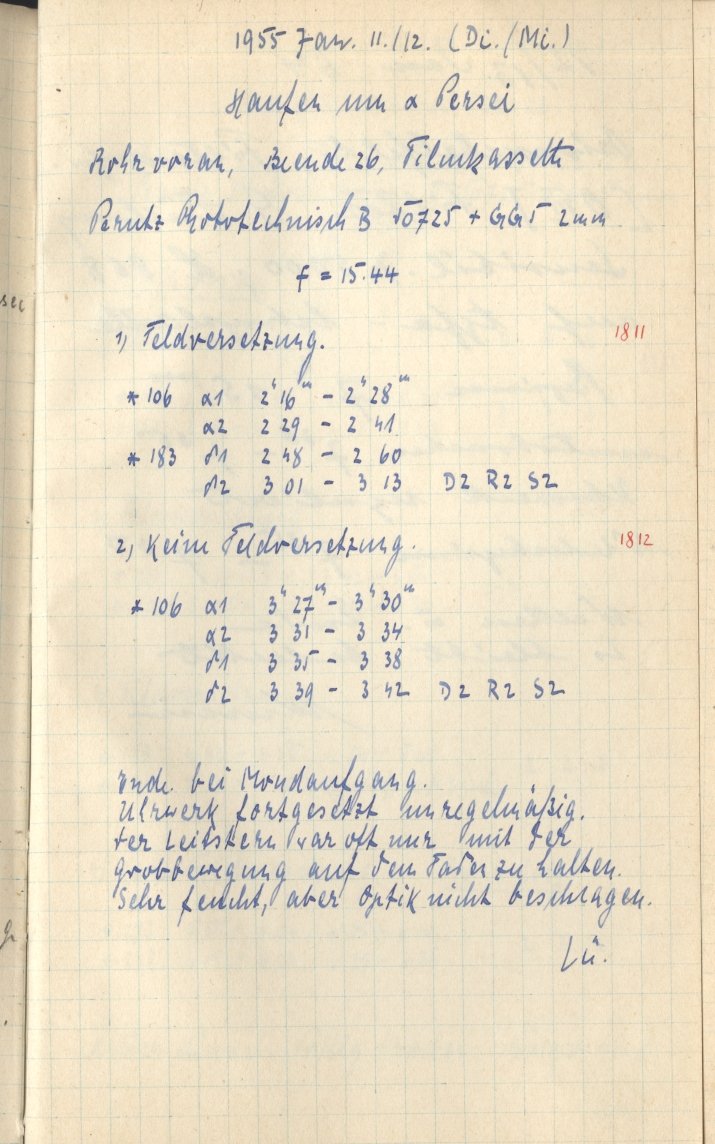 1955 Jan. 11./12. (Di./Mi.)
Haufen um α Persei
Rohr voran, Blende 26, Filmkassette
Perutz Phototechnisch B 50725 + GG5 2mm
f = 15.44
sec
1, Feldversetzung. 1811
* 106 α1 2ʰ16ᵐ - 2ʰ28ᵐ
α2 2 29 - 2 41
* 183 δ1 2 48 - 2 60
δ2 3 01 - 3 13 D2 R2 S2
2, Keine Feldversetzung. 1812
* 106 α1 3ʰ27ᵐ - 3ʰ30ᵐ
α2 3 31 - 3 34
δ1 3 35 - 3 38
δ2 3 39 - 3 42 D2 R2 S2
Ende bei Mondaufgang.
Uhrwerk fortgesetzt unregelmäßig.
Der Leitstern war oft nur mit der
Grobbewegung auf dem Faden zu halten.
Sehr feucht, aber Optik nicht beschlagen.
Lü.